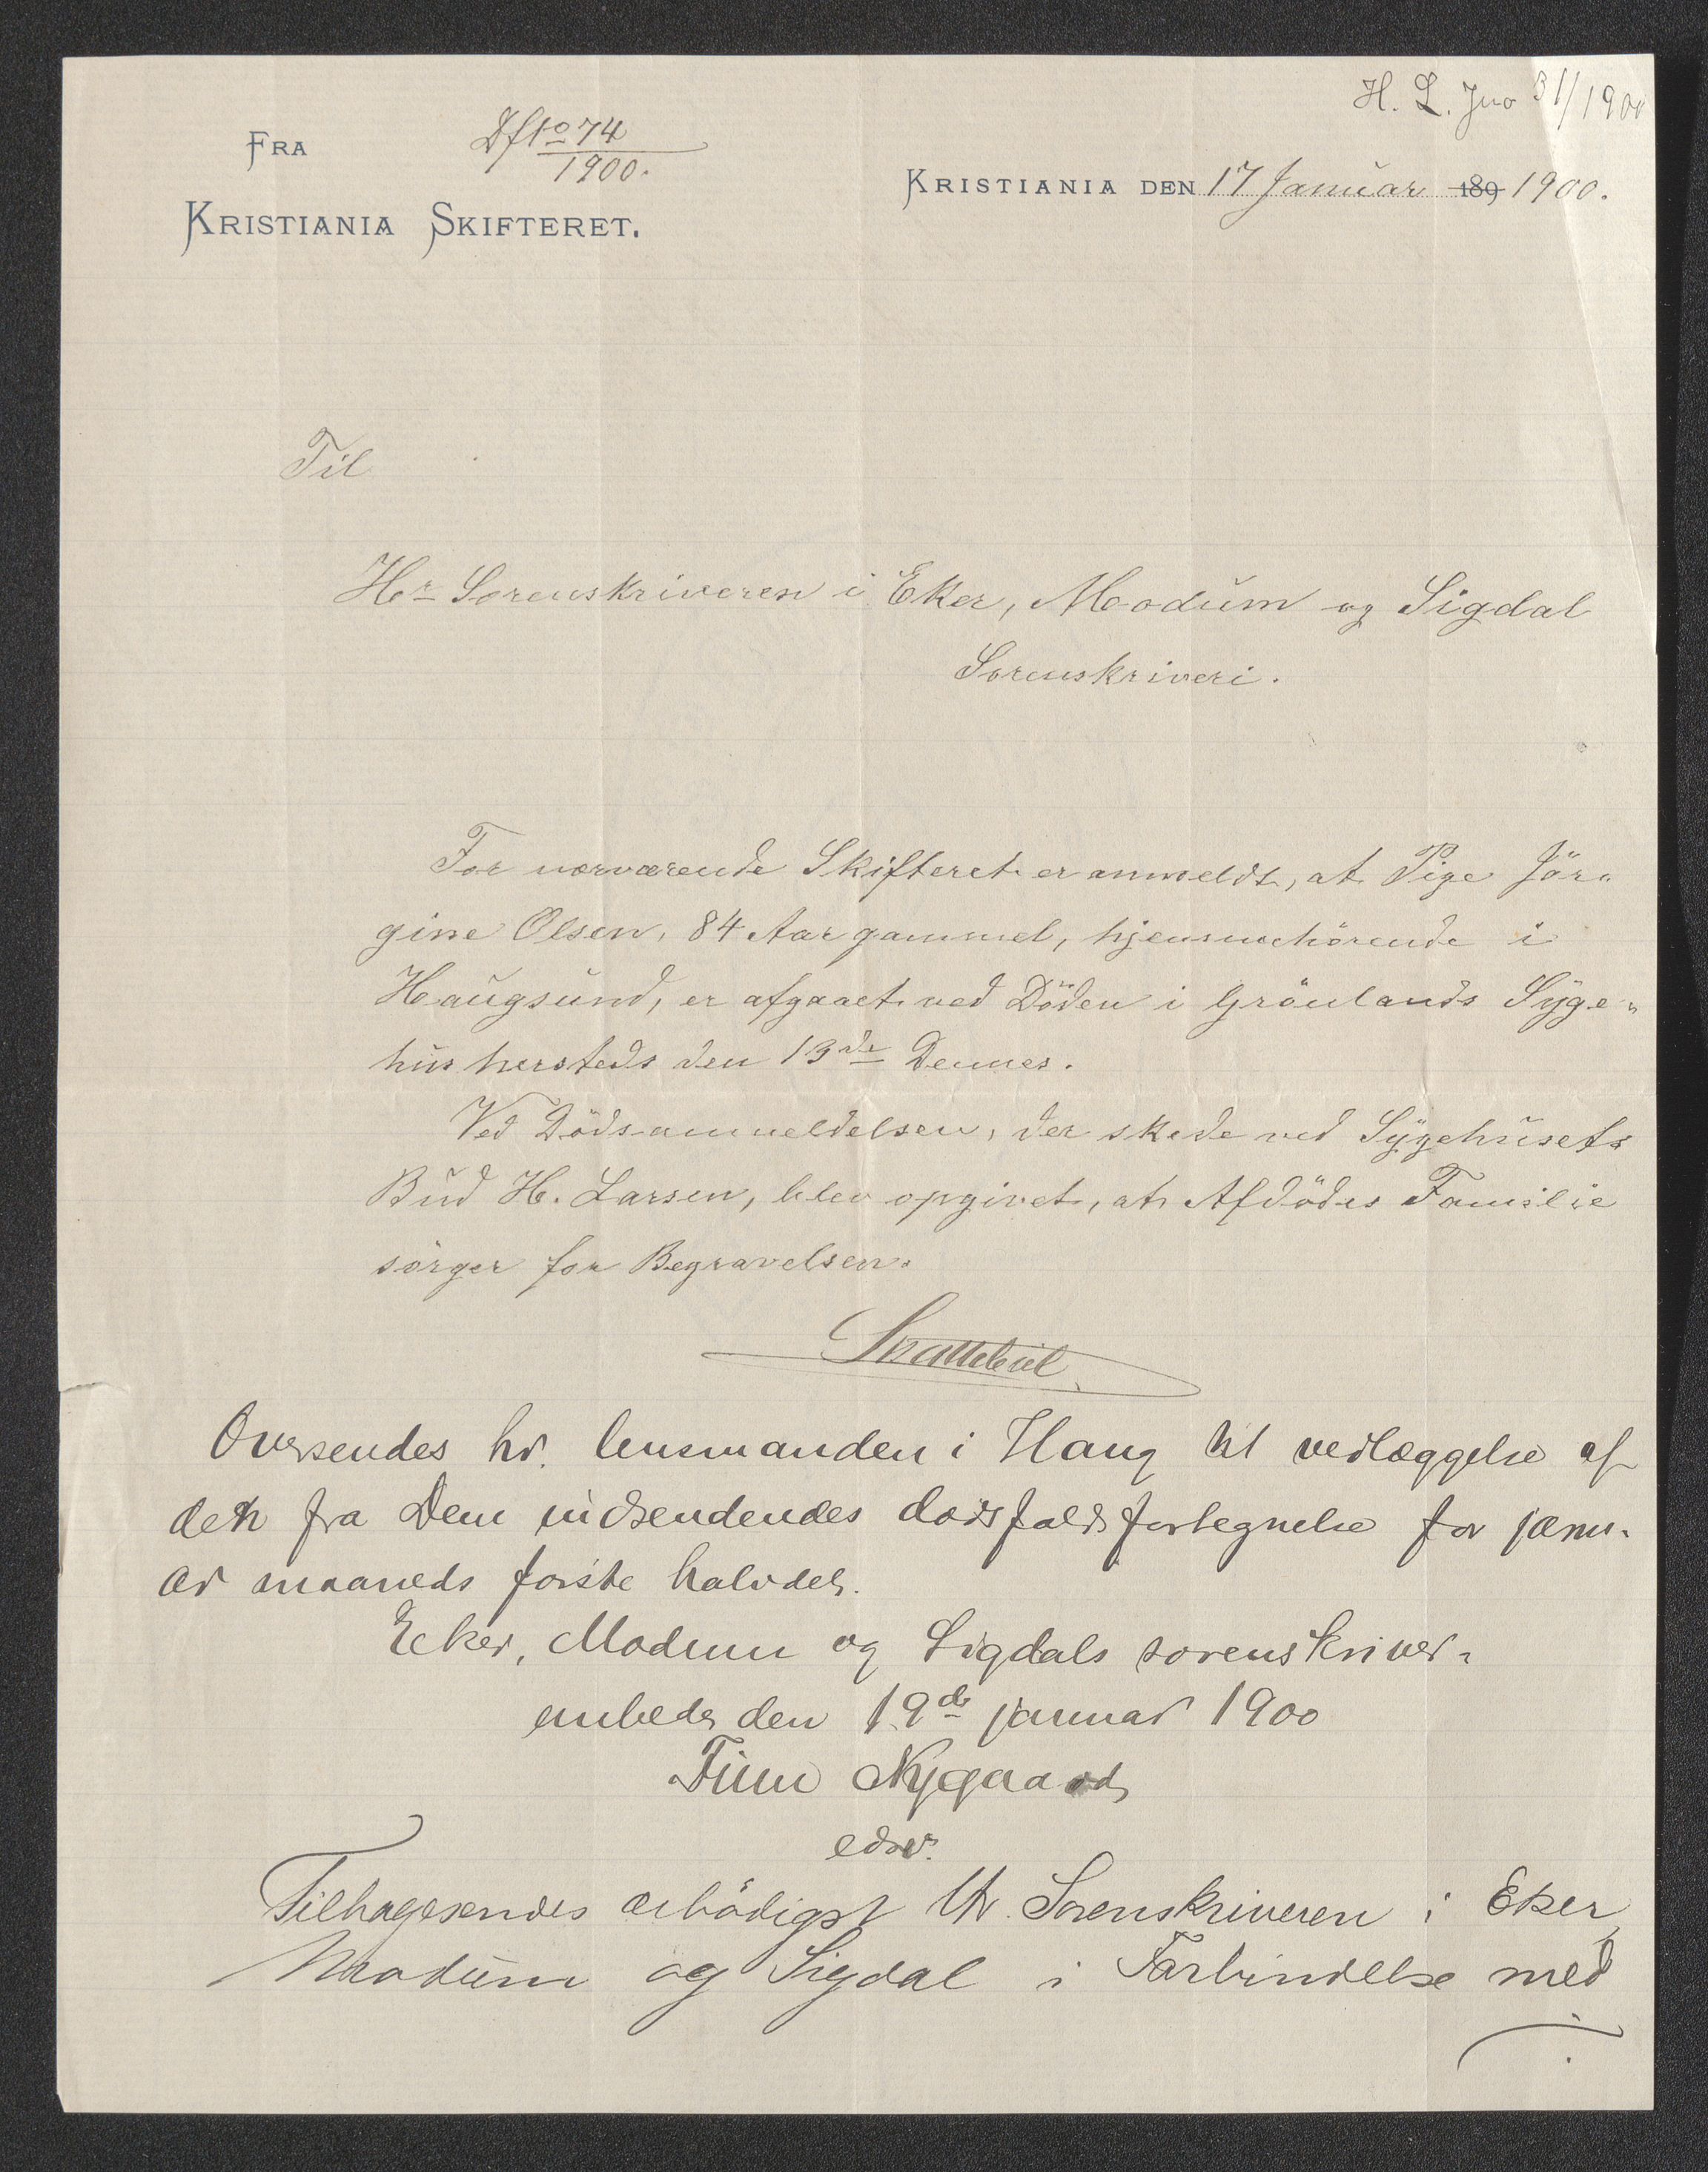 H. L. Jno 31/1900
Dfl 74
1900.
FRA
KRISTIANIA SKIFTERET.
KRISTIANIA DEN 17 Januar 189 1900.
Til
Hr Sorenskriveren i Eker, Modum og Sigdal
Sorenskriveri.
For nærværende Skifteret er anmeldt, at Pige Jör-
gine Olsen, 84 Aar gammel, hjemmehörende i
Haugsund, er afgaaet ved Döden i Grönlands Syge-
hus hersteds den 13de Dennes.
Ved Dödsanmeldelsen, der skede ved Sygehusets
Bud H. Larsen, blev opgivet, at Afdödes Familie
sörger for Begravelsen.
Oversendes hr. lensmanden i Haug til vedlæggelse af
den fra Dem indsendendes dødsfaldsfortegnelse for janu-
ar maaneds første halvdel.
Eker, Modum og Sigdals sorenskriver-
embede den 19de januar 1900
Finn Nygaard
edsv.
Tilbagesendes ærbödigst Hr. Sorenskriveren i Eker,
Modum og Sigdal i Forbindelse med